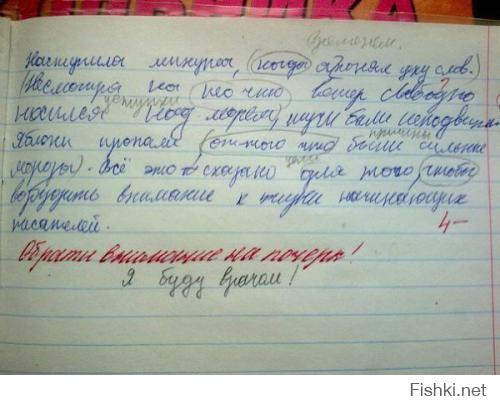 Временем.
Наступила минута, (когда я понял уху слов.)
(Несмотря на нео что ветер свободно
уступки
носился над морем, тучи были неподвиж.
причины
Яблони пропали (оттого что были сильные
цели
морозы). Всё это сказано для того, чтобы
возбудить внимание к жизни начинающих
писателей.
4-
Обрати внимание на почерк!
Я буду врачом!
Fishki.net